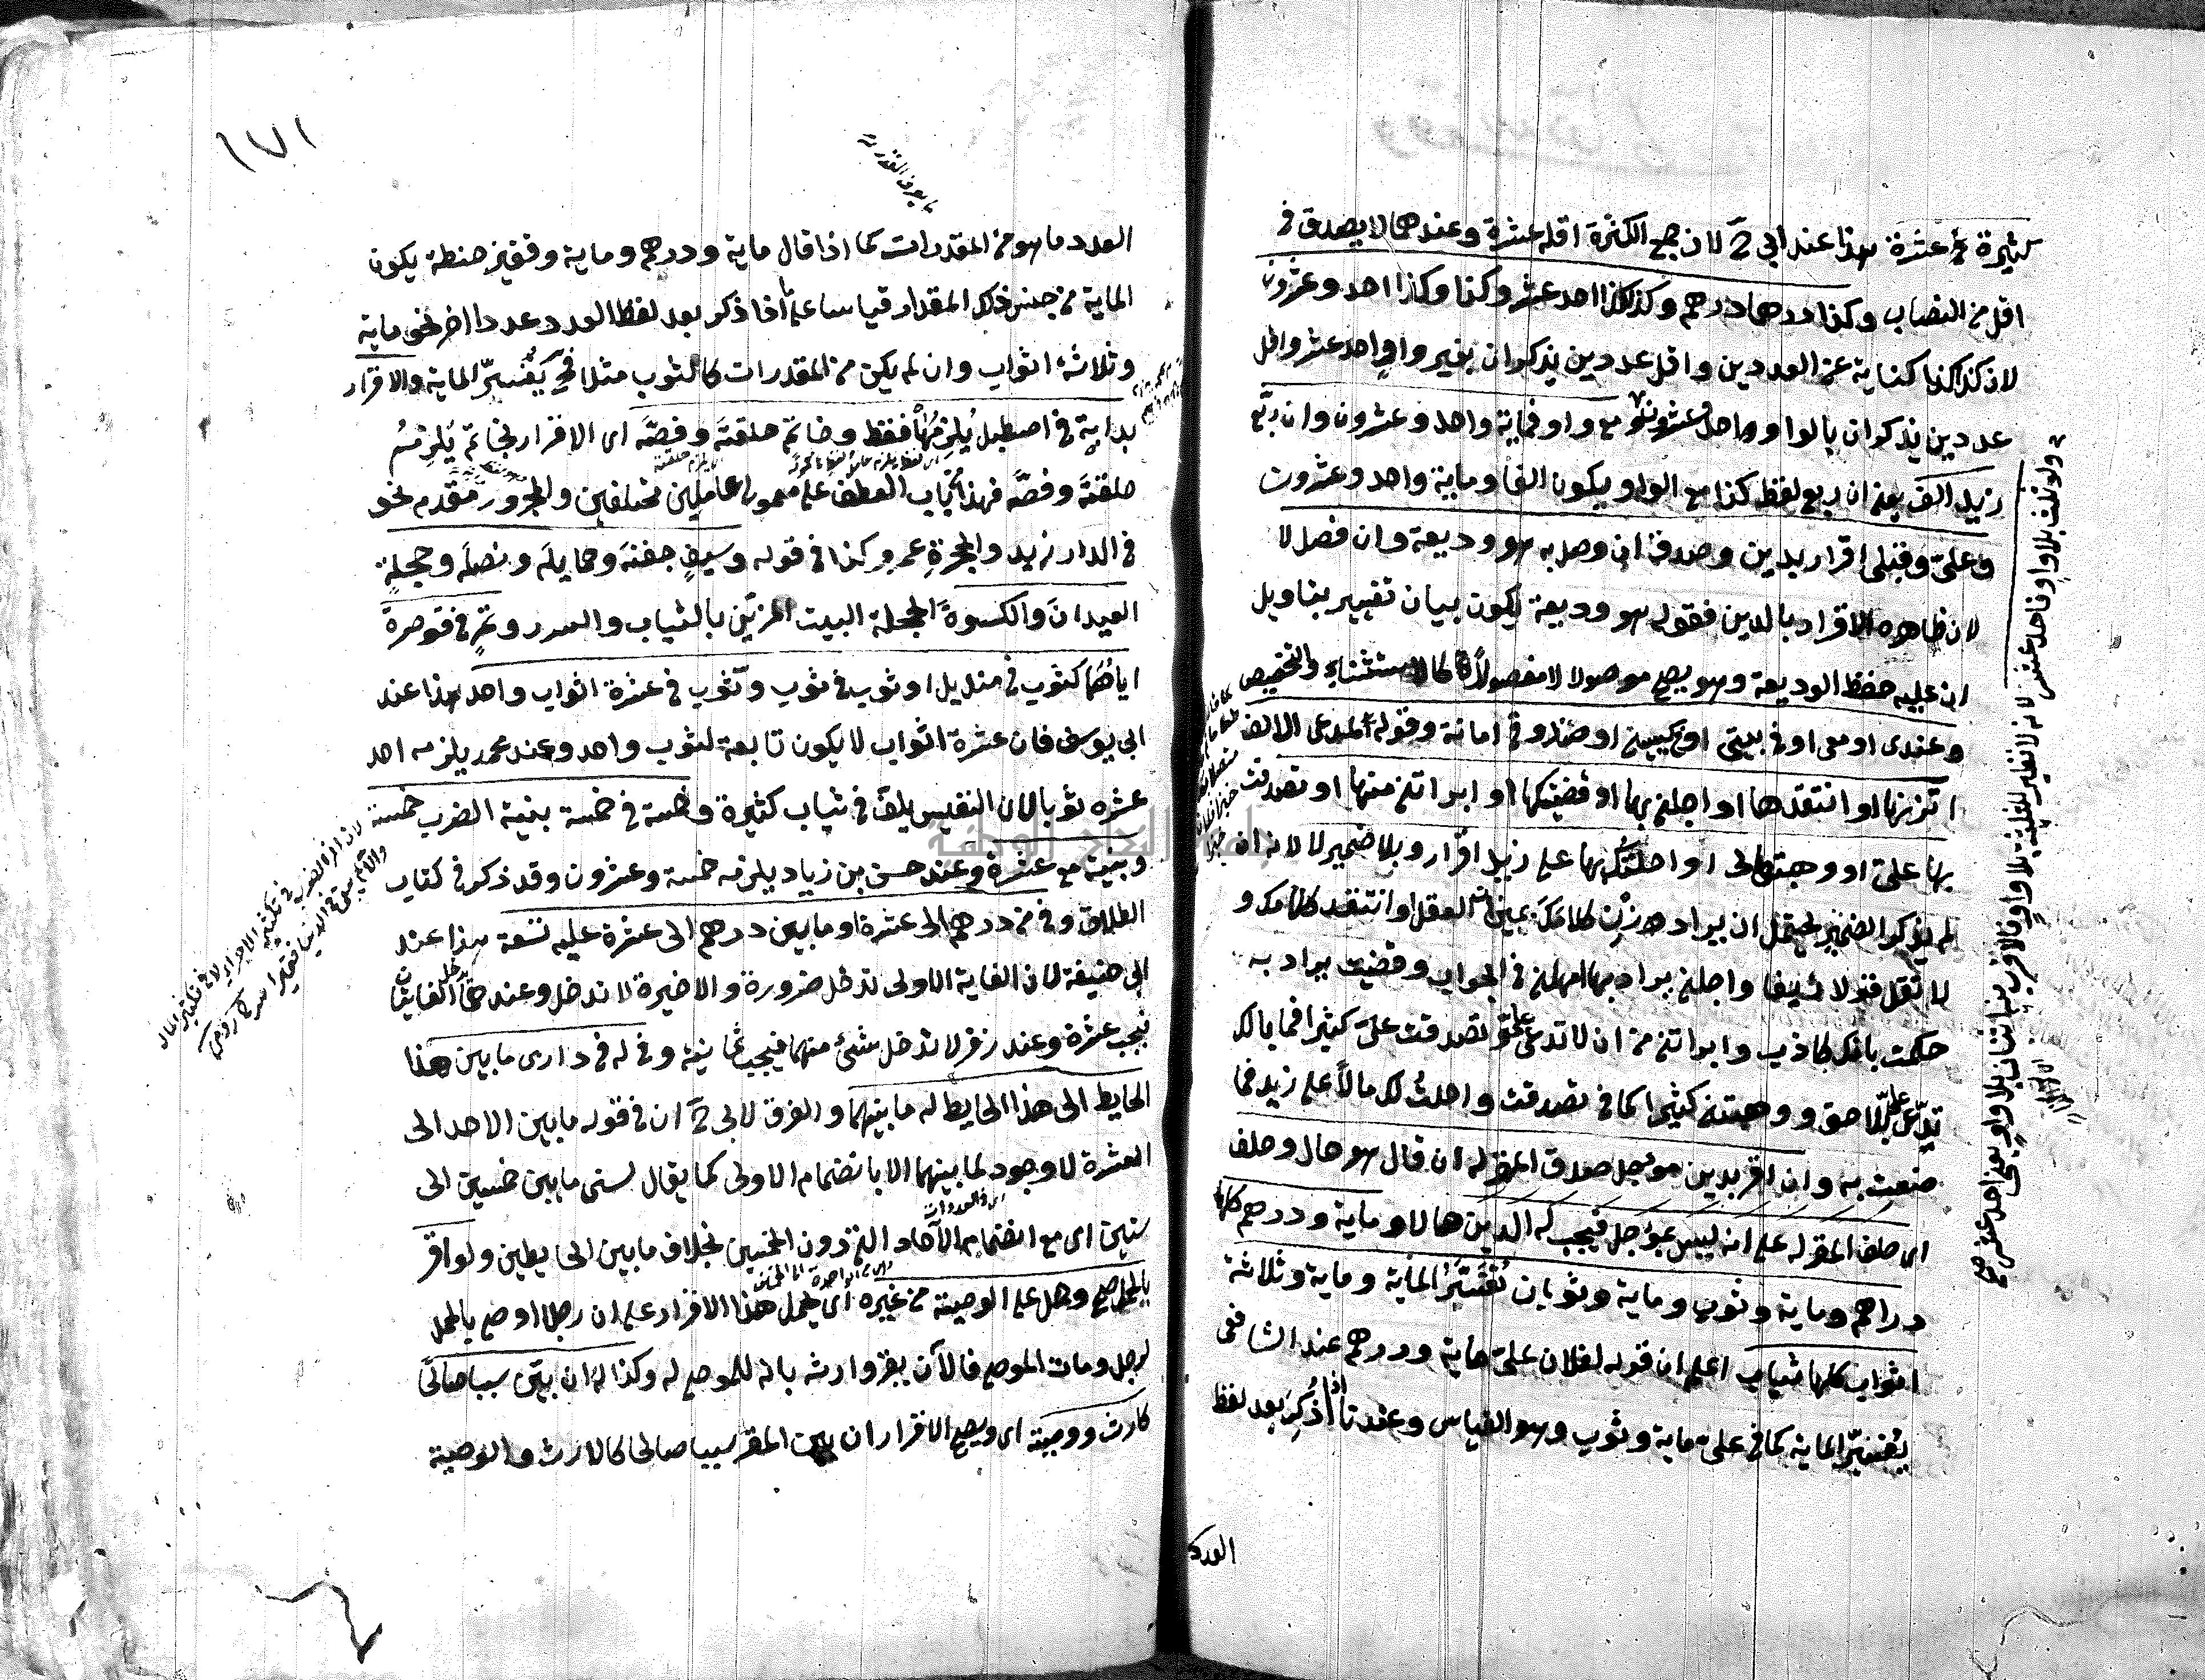 كثيرة عشرة هذا عند ابي ح لان جمع الكثرة اقله عشرة وعندهما لا يصدق في
اقل من النصاب وكذا درهما درهم وكذا كذا احد عشر وكذا وكذا احد وعشرون
لان كذا كذا كناية عن العددين واقل عددين يذكران بغير واو احد عشر واقل
عددين يذكران بالواو احد وعشرون مع واو فماية واحد وعشرون وان ربع
زيد الف يعني ان ربع لفظ كذا مع الواو يكون الفا وماية واحد وعشرون
وعلىّ وقبلي اقرار بدين وصدق ان وصل به هو وديعة وان فصل لا
لان ظاهره الاقرار بالدين فقوله هو وديعة يكون بيان تغيير بتاويل
ان عليه حفظ الوديعة وهو يصح موصولا لا مفصولا كالاستثناء والتخصيص
وعندي او معي او في بيتي او كيسي او صندوقي امانة وقوله لمدعي الالف
اتزنها او انتقدها او اجلني بها او قضيتكها او ابراتني منها او تصدقت
بها علىّ او وهبتها لي او احلتك بها على زيد اقرار وبلا ضمير لا لانه ان
لم يذكر الضمير يحتمل ان يراد زن كلامك بميزان العقل او انتقد كلامك و
لا تقل قولا زيفا واجلني يراد بها امهلني في الجواب وقضيت يراد به
حكمت بانك كاذب وابراتني من ان لا تدعي علىّ وتصدقت علىّ كثيرا فما بالك
تدعي علىّ بلا حق ووهبتني كثيرا كما في تصدقت واحلت لك مالا على زيد فما
صنعت به وان اقر بدين موجل صدق المقر له ان قال هو حال وحلف
اى حلف المقر له على انه ليس بموجل فيجب له الدين حالا وماية ودرهم كلها
دراهم وماية وثوب وماية وثوبان تُفَسَّرُ الماية وماية وثلاثة
اثواب كلها ثياب اعلم ان قوله لفلان علىّ ماية ودرهم عند الشافعي
يُفسّر الماية كما في علىّ ماية وثوب وهو القياس وعندنا اذا ذُكر بعد لفظ
العدد
١٧١
العدد ما هو من المقدرات كما اذا قال ماية ودرهم وماية وقفيز حنطة يكون
الماية من جنس ذلك المقدار قياسا على ما اذا ذكر بعد لفظ العدد عددا اخر نحو ماية
وثلاثة اثواب وان لم يكن من المقدرات كالثوب مثلا فح يُفسّر الماية والاقرار
بدابة في اصطبل يُلزمها فقط وخاتم حلقته وفصّه اى الاقرار بخاتم يُلزمه
حلقته وفصّه فهذا باب العطف على معمولى عاملين مختلفين والمجرور مقدم نحو
في الدار زيد والحجرةِ عمرو وكذا في قوله وسيفٍ جفنه وحمايله ونصله وحجلةٍ
العيدان والكسوة الحجلة البيت المزيّن بالثياب والسرر وتمر في قوصرة
اياهما كثوب في منديل او ثوب في ثوب وثوب في عشرة اثواب واحد هذا عند
ابي يوسف فان عشرة اثواب لا يكون تابعة لثوب واحد وعند محمد يلزمه احد
عشره ثوبا لان النفيس يلف في ثياب كثيرة وخمسة في خمسة بنية الضرب خمسة
وبنية مع عشرة وعند حسن بن زياد يلزمه خمسة وعشرون وقد ذكر في كتاب
الطلاق وفي من درهم الى عشرة او ما بين درهم الى عشرة عليه تسعة هذا عند
ابي حنيفة لان الغاية الاولى تدخل ضرورة والاخيرة لا تدخل وعندهما تدخل الغايتان
فيجب عشرة وعند زفر لا تدخل شئ منهما فيجب ثمانية وفي له في داري ما بين هذا
الحايط الى هذا الحايط له ما بينهما والفرق لابي ح ان في قوله ما بين الاحد الى
العشرة لا وجود لما بينهما الا بانضمام الاولى كما يقال لسني ما بين خمسين الى
ستين اى مع انضمام الآحاد التي دون الخمسين بخلاف ما بين الحايطين ولو اقر
بالحمل صح وحمل على الوصية من غيره اى يحمل هذا الاقرار على ان رجلا اوصى بالحمل
لرجل ومات الموصي فالآن يقر وارثه بانه للموصى له وكذا له ان بيّن سببا صالحا
كارث ووصية اى ويصح الاقرار ان بيّن المقر سببا صالحا كالارث والوصية